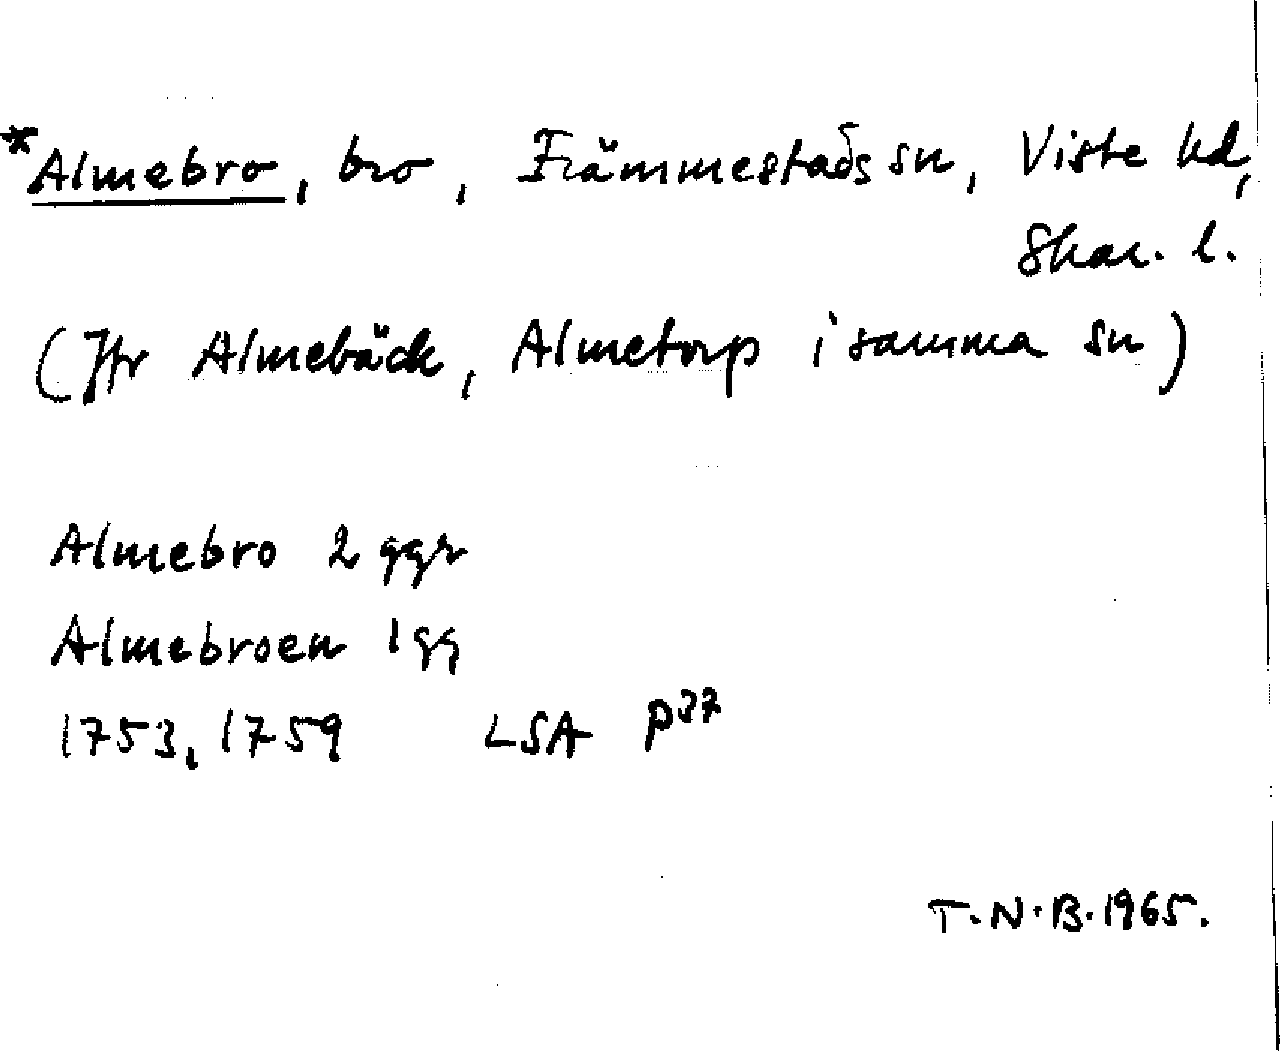 *Almebro, bro, Främmestads sn, Viste hd,
Skar. l.
(Jfr Almebäck, Almetorp i samma sn)
Almebro 2 ggr
Almebroen 1 gg
1753, 1759 LSA P37
T.N.B. 1965.